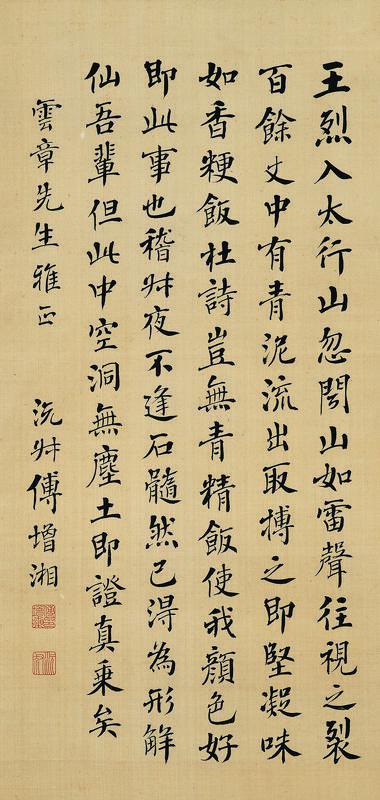 王烈入太行山忽聞山如雷聲往視之裂
百餘丈中有青泥流出取摶之即堅凝味
如香粳飯杜詩豈無青精飯使我顏色好
即此事也稽叔夜不逢石髓然已得為形解
仙吾輩但此中空洞無塵土即證真乘矣
雲章先生雅正
沅叔傅增湘